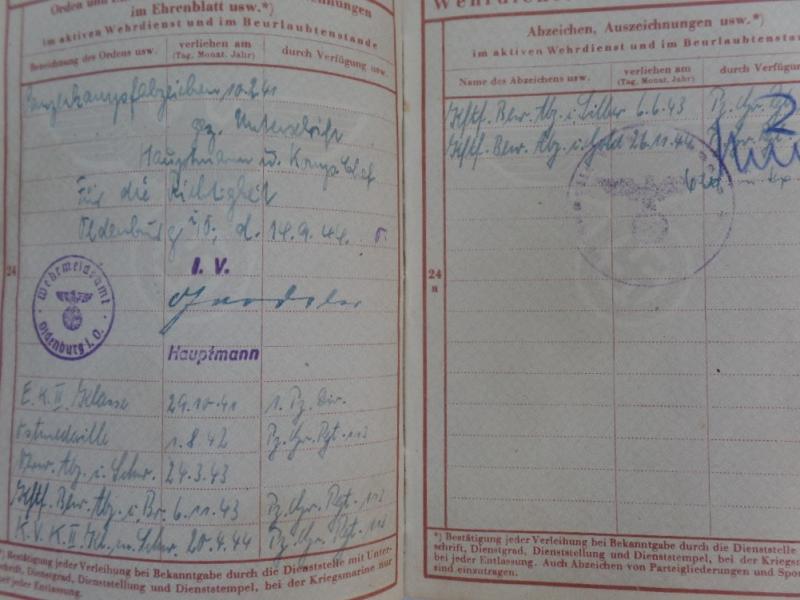 Orden und
im Ehrenblatt usw.*)
im aktiven Wehrdienst und im Beurlaubtenstande
Bezeichnung des Ordens usw.
verliehen am
(Tag, Monat, Jahr)
durch Verfügung usw.
Panzerkampfabzeichen 10.2.41
gez. Unterschrift
Hauptmann u. Komp. Chef
Für die Richtigkeit
Oldenburg i/O, d. 14.9.44.
I. V.
Hauptmann
Wehrmeldeamt
Oldenburg i. O.
24
E.K. II. Klasse 29.10.41 1. Pz. Div.
Ostmedaille 1.8.42 Pz. Gr. Rgt. 113
Verw. Abz. i. Schw. 24.3.43
Kftf. Bew. Abz. i. Br. 6.11.43 Pz. Gr. Rgt. 113
K.V.K. II. Kl. m. Schw. 20.4.44 Pz. Gr. Rgt. 113
*) Bestätigung jeder Verleihung bei Bekanntgabe durch die Dienststelle mit Unter-
schrift, Dienstgrad, Dienststellung und Dienststempel, bei der Kriegsmarine nur
bei jeder Entlassung.
Abzeichen, Auszeichnungen usw.*)
im aktiven Wehrdienst und im Beurlaubtenstande
Name des Abzeichens usw.
verliehen am
(Tag, Monat, Jahr)
durch Verfügung
Kftf. Bew. Abz. i. Silber 6.6.43 Pz. Gr. Rgt.
Kftf. Bew. Abz. i. Gold 26.11.44
24
a
*) Bestätigung jeder Verleihung bei Bekanntgabe durch die Dienststelle
schrift, Dienstgrad, Dienststellung und Dienststempel, bei der Kriegsmarine
bei jeder Entlassung. Auch Abzeichen von Parteigliederungen und Spo
sind einzutragen.